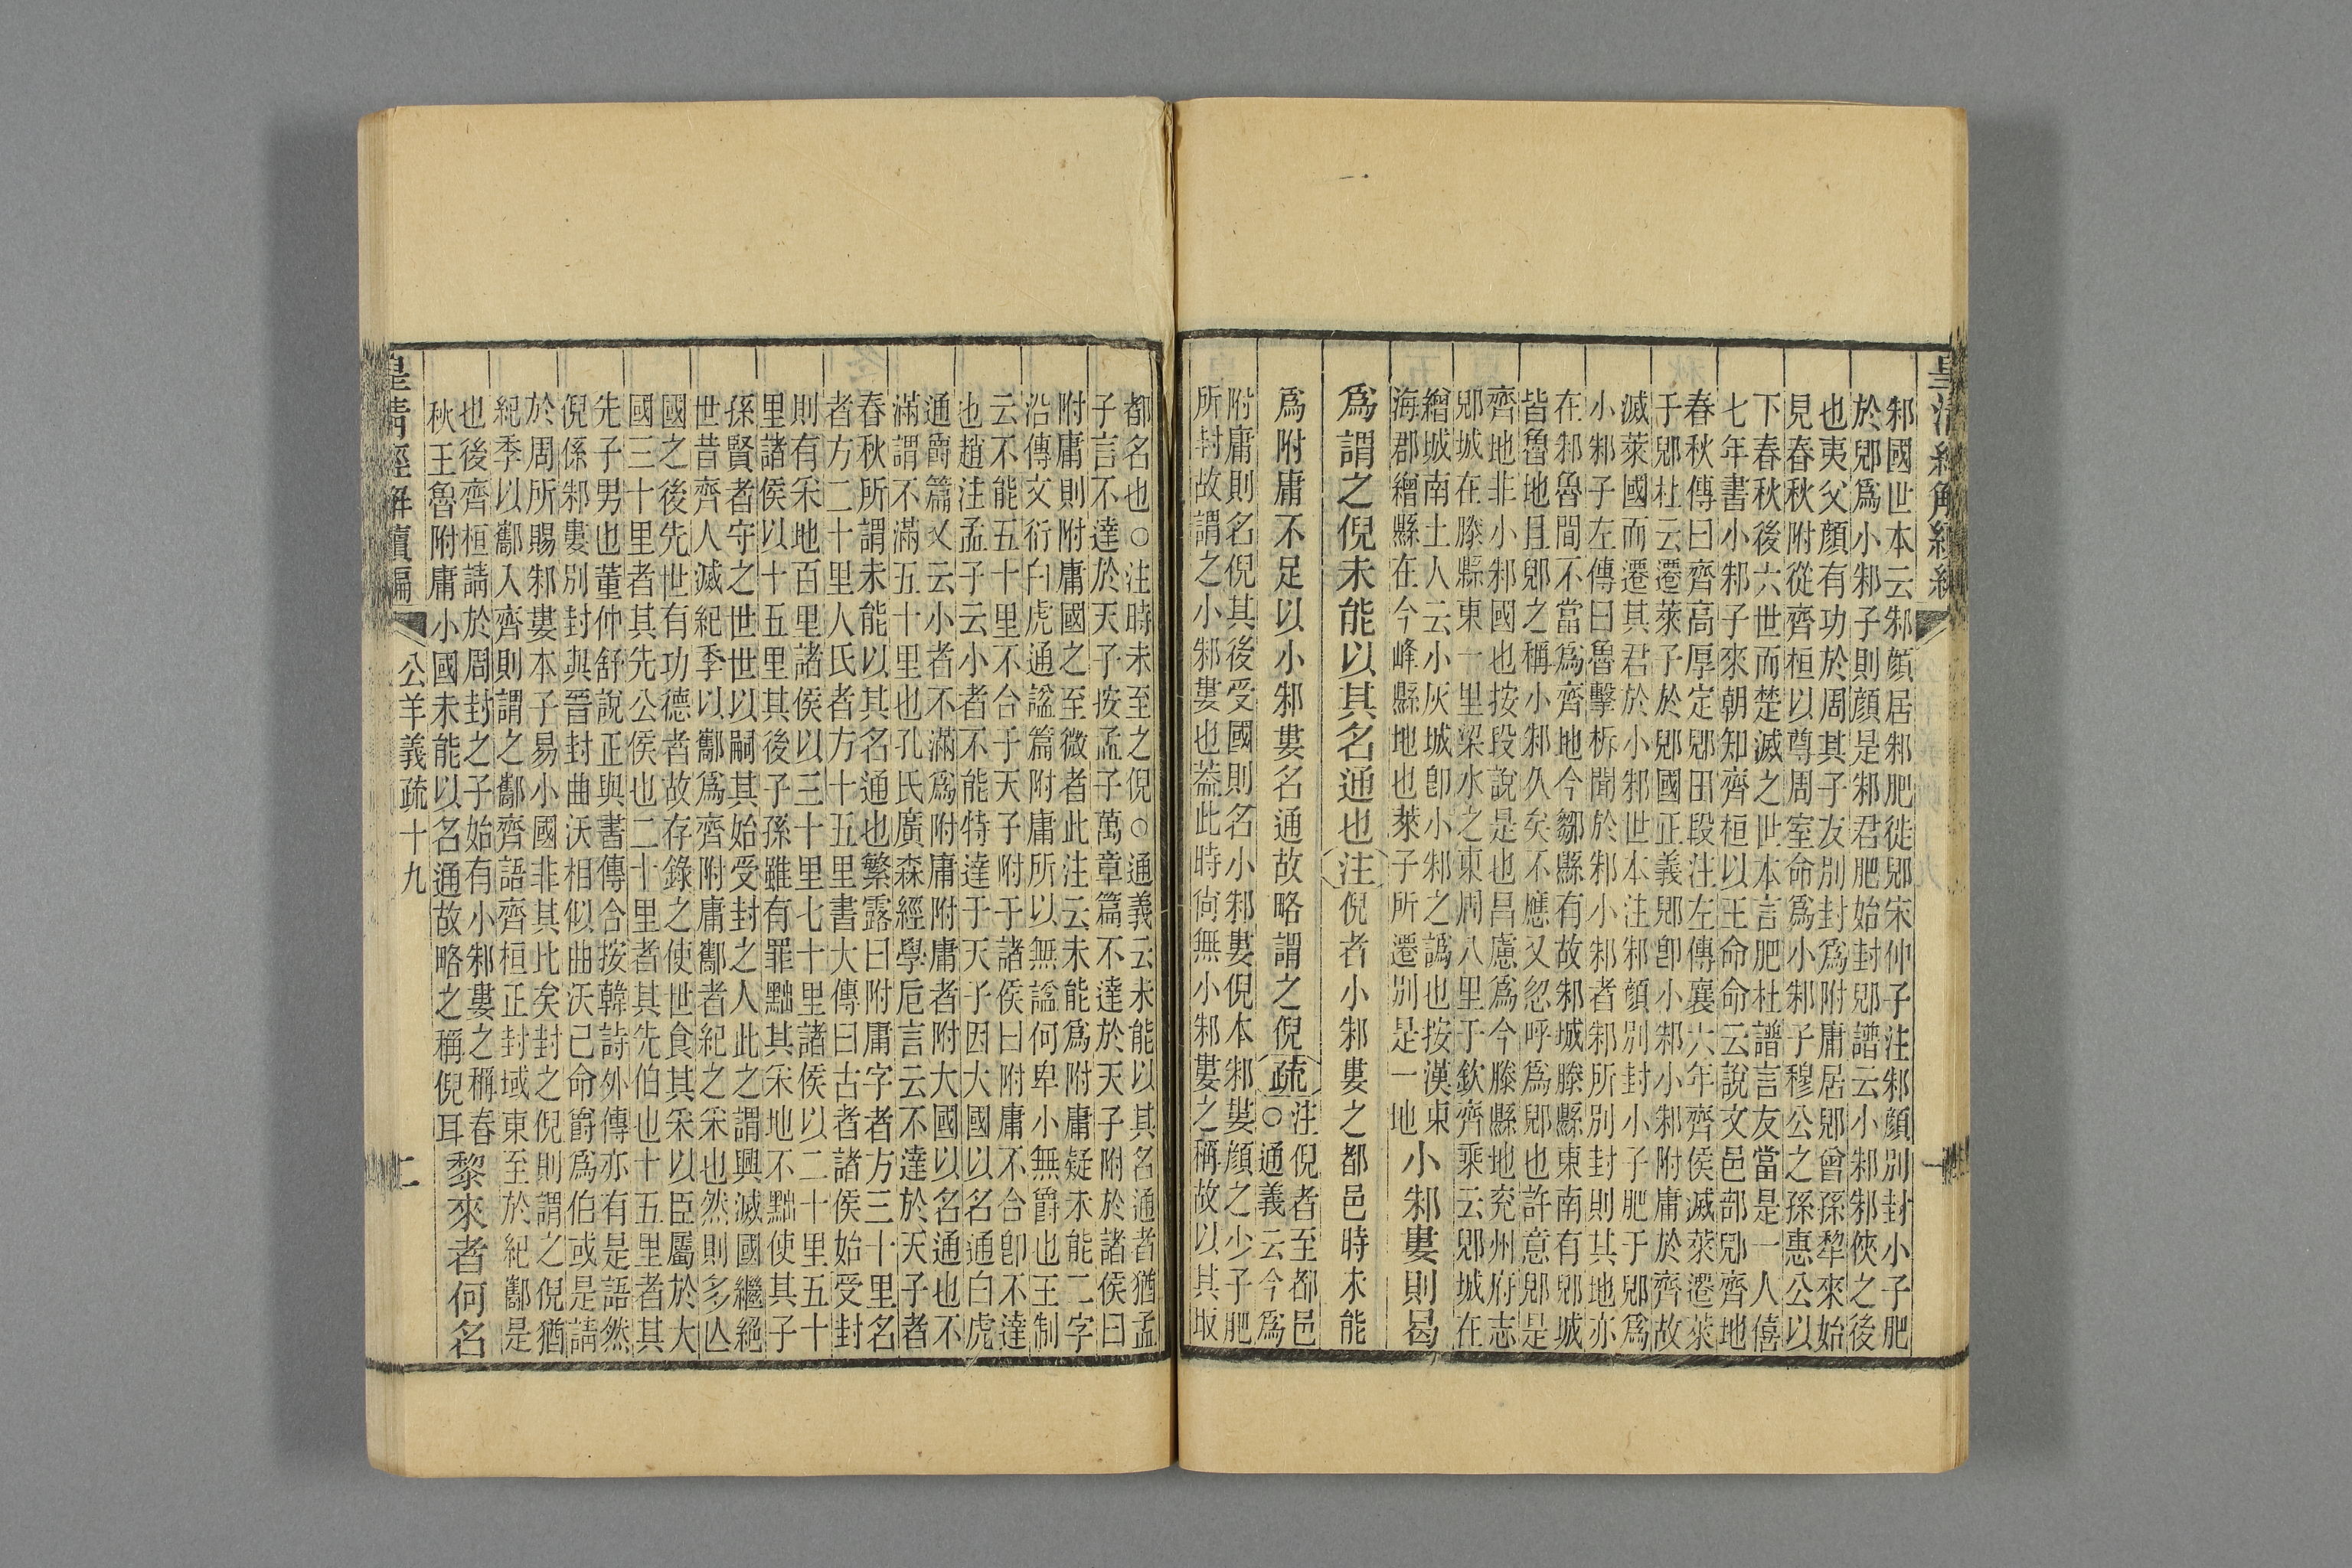 皇清經解續編
一
邾國世本云邾顔居邾肥徙郳宋仲子注邾顔別封小子肥
於郳爲小邾子則顔是邾君肥始封郳譜云小邾邾俠之後
也夷父顔有功於周其子友別封爲附庸居郳曾孫犂來始
見春秋附從齊桓以尊周室命爲小邾子穆公之孫惠公以
下春秋後六世而楚滅之世本言肥杜譜言友當是一人僖
七年書小邾子來朝知齊桓以王命命云說文邑部郳齊地
春秋傳曰齊高厚定郳田段注左傳襄六年齊侯滅萊遷萊
于郳杜云遷萊子於郳國正義郳卽小邾小邾附庸於齊故
滅萊國而遷其君於小邾世本注邾顔別封小子肥于郳爲
小邾子左傳曰魯擊柝聞於邾小邾者邾所別封則其地亦
在邾魯間不當爲齊地今鄒縣有故邾城滕縣東南有郳城
皆魯地且郳之稱小邾久矣不應又忽呼爲郳也許意郳是
齊地非小邾國也按段說是也昌慮爲今滕縣地兖州府志
郳城在滕縣東一里梁水之東周八里于欽齊乘云郳城在
繒城南土人云小灰城卽小邾之譌也按漢東
海郡繒縣在今峄縣地也萊子所遷別是一地
小邾婁則曷
爲謂之倪未能以其名通也注倪者小邾婁之都邑時未能
爲附庸不足以小邾婁名通故略謂之倪疏
注倪者至都邑
○通義云今爲
附庸則名倪其後受國則名小邾婁倪本邾婁顔之少子肥
所封故謂之小邾婁也葢此時尙無小邾婁之稱故以其取
都名也○注時未至之倪○通義云未能以其名通者猶孟
子言不達於天子按孟子萬章篇不達於天子附於諸侯曰
附庸則附庸國之至微者此注云未能爲附庸疑未能二字
沿傳文衍白虎通諡篇附庸所以無諡何卑小無爵也王制
云不能五十里不合于天子附于諸侯曰附庸不合卽不達
也趙注孟子云小者不能特達于天子因大國以名通白虎
通爵篇又云小者不滿爲附庸附庸者附大國以名通也不
滿謂不滿五十里也孔氏廣森經學卮言云不達於天子者
春秋所謂未能以其名通也繁露曰附庸字者方三十里名
者方二十里人氏者方十五里書大傳曰古者諸侯始受封
則有采地百里諸侯以三十里七十里諸侯以二十里五十
里諸侯以十五里其後子孫雖有罪黜其采地不黜使其子
孫賢者守之世世以嗣其始受封之人此之謂興滅國繼絕
世昔齊人滅紀季以酅爲齊附庸酅者紀之采也然則多亾
國之後先世有功德者故存錄之使世食其采以臣屬於大
國三十里者其先公侯也二十里者其先伯也十五里者其
先子男也董仲舒說正與書傳合按韓詩外傳亦有是語然
倪係邾婁別封與晉封曲沃相似曲沃已命爵爲伯或是請
於周所賜邾婁本子易小國非其比矣封之倪則謂之倪猶
紀季以酅入齊則謂之酅齊語齊桓正封域東至於紀酅是
也後齊桓請於周封之子始有小邾婁之稱春
秋王魯附庸小國未能以名通故略之稱倪耳
黎來者何名
皇清經解續編
公羊義疏十九
二